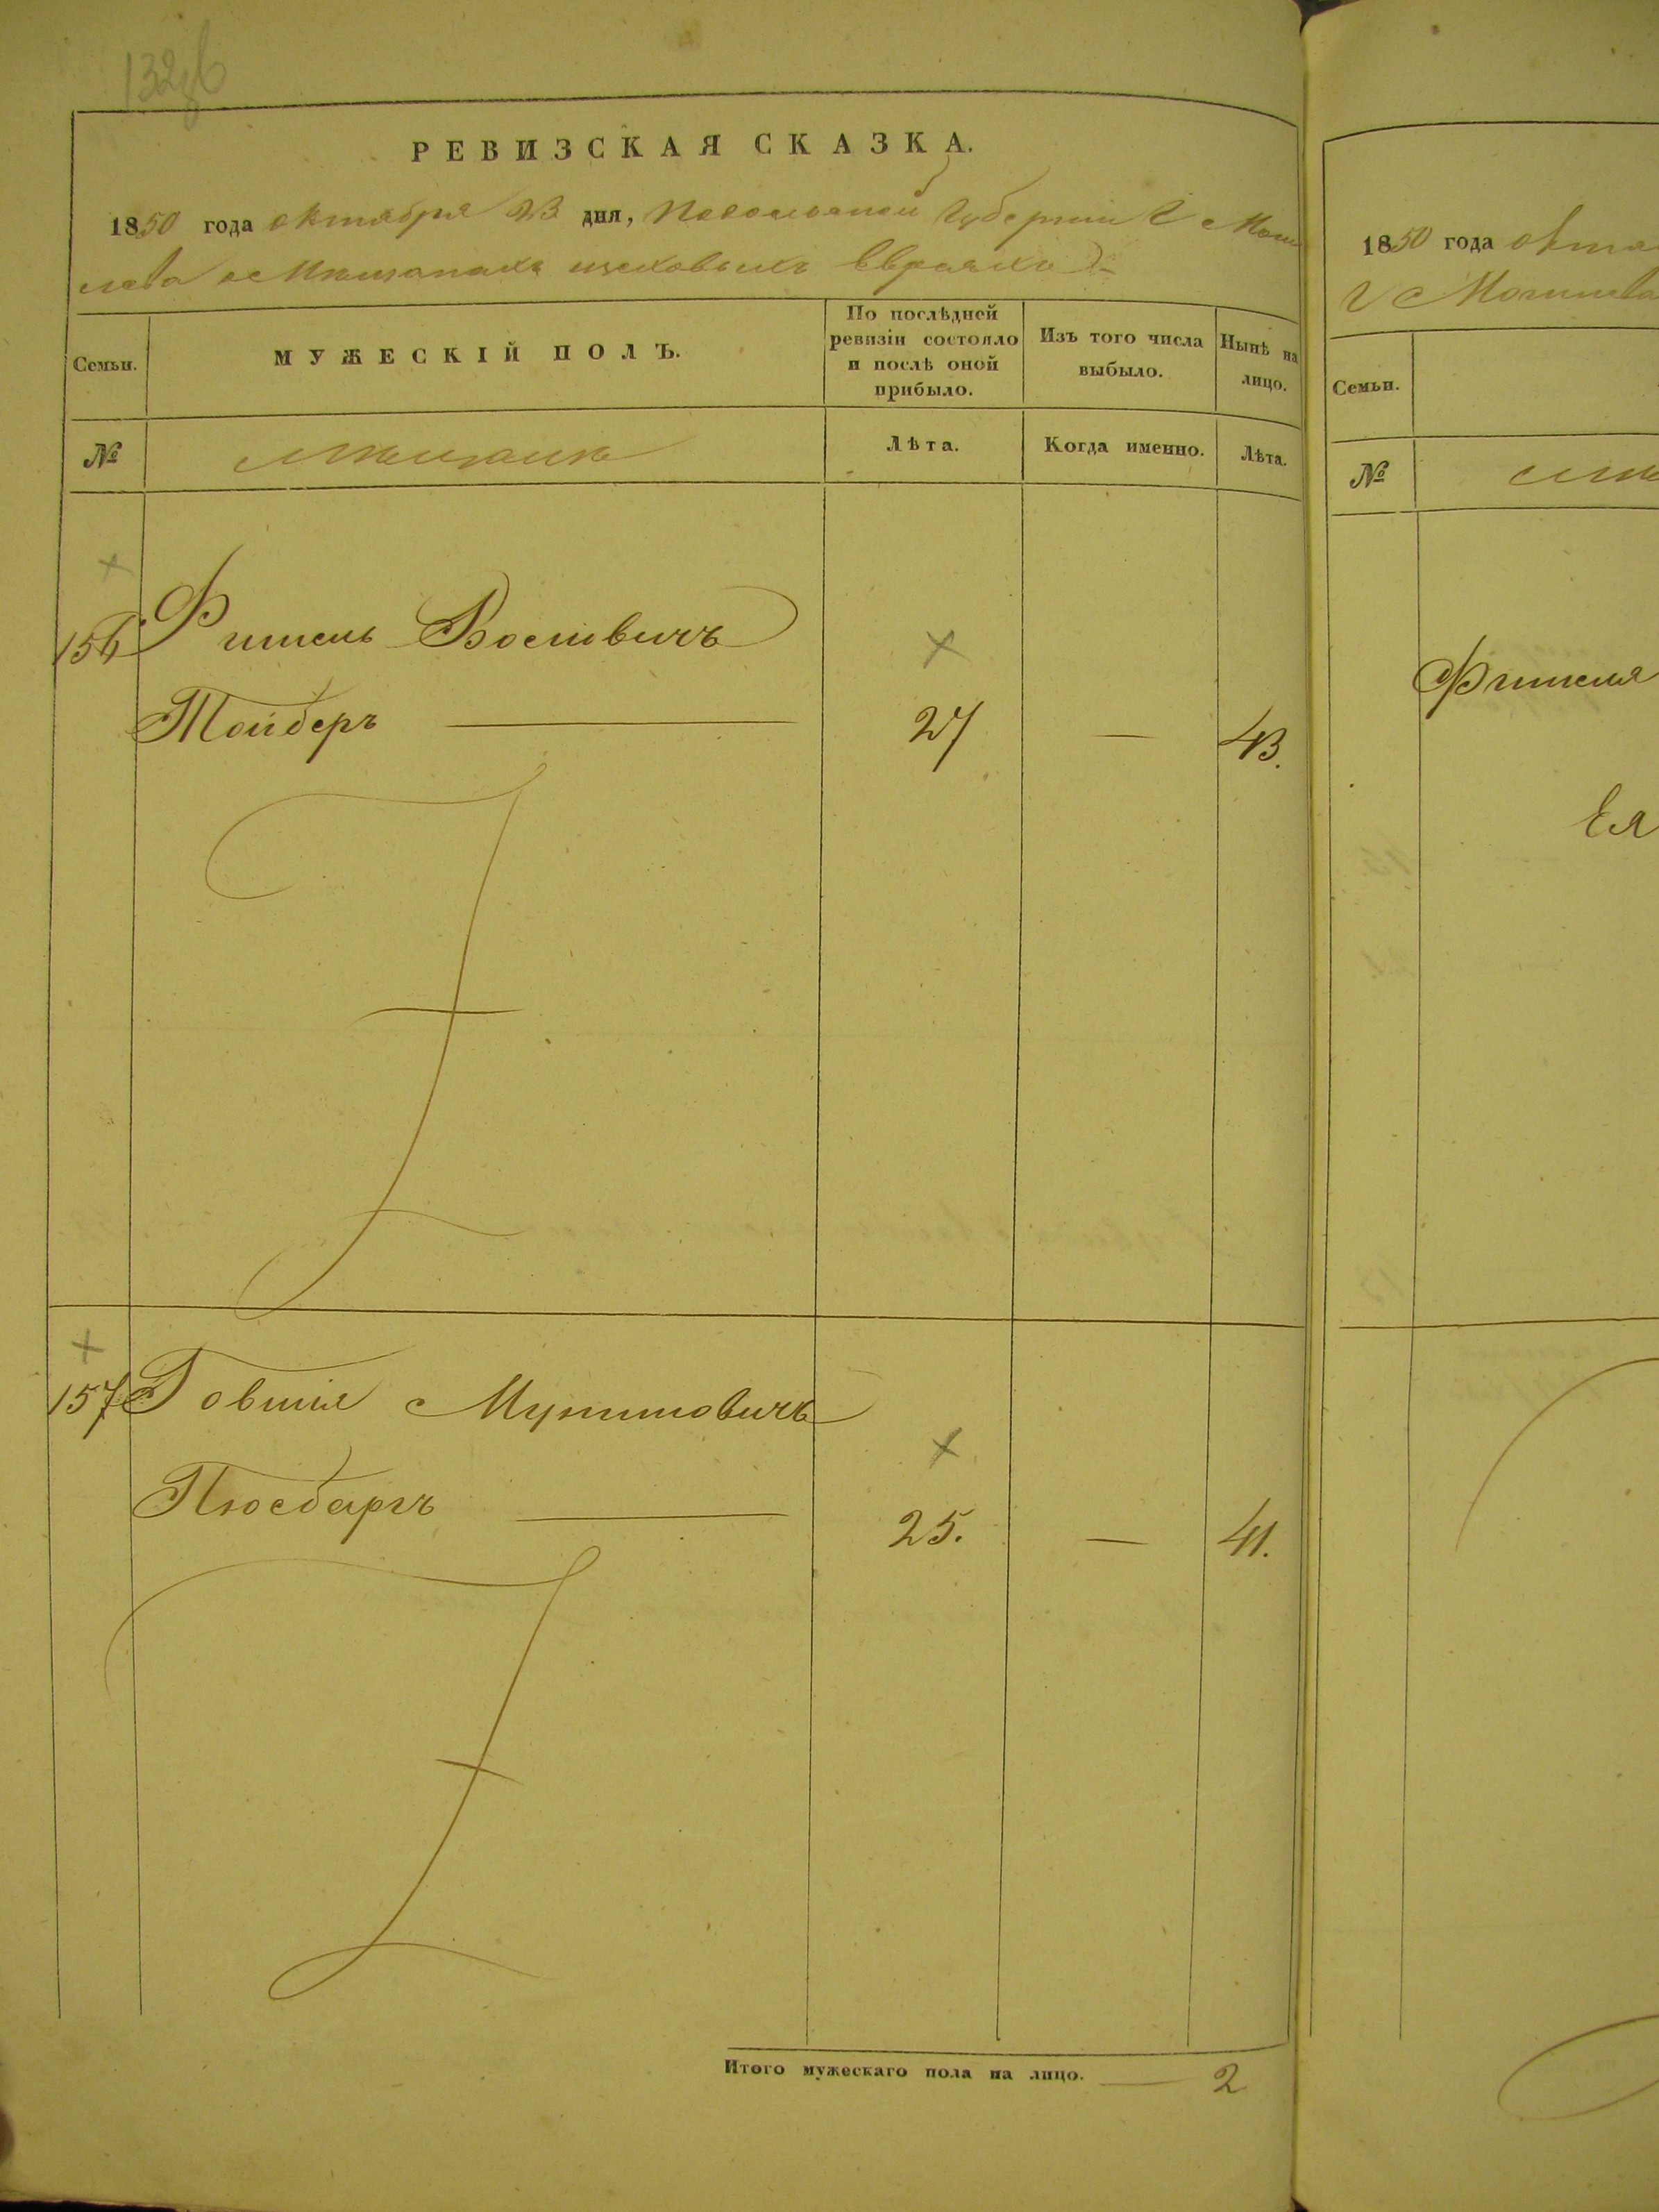 132об
РЕВИЗСКАЯ СКАЗКА.
1850 года октября 23 дня, Подольской Губернии Г Моги
лева о Мѣщанахъ цеховыхъ Евреяхъ
Семьи.
МУЖЕСКІЙ ПОЛЪ.
По послѣдней ревизіи состояло и послѣ оной прибыло.
Изъ того числа выбыло.
Нынѣ на лицо.
№
мѣщане
Лѣта.
Когда именно.
Лѣта.
156 Фишель Босювичъ
Тойберъ 27 — 43.
157 Говшія Мунишовичъ
Плюсбаргъ 25. — 41.
Итого мужескаго пола на лицо. — 2
1850 года октя
Г Могилева
Семьи.
№
мѣ
Фишеля
Ея